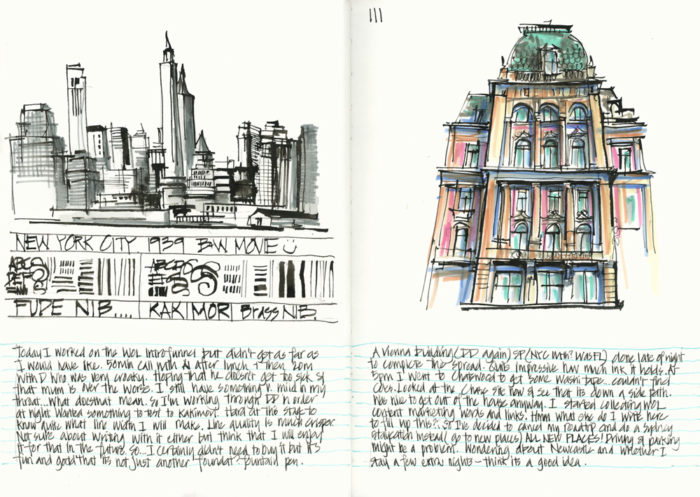 NEW YORK CITY 1939 B+W MOVIE
ABCD
ABCDE
FUDE NIB....
KAKIMORI BRASS NIB.
Today I worked on the WOL Intro funnel but didn't get as far as
I would have like. 50min call with A after lunch & then Zoom
with D who was very creaky. Hoping that he doesn't get too sick &
that mum is over the worse. I still have something mild in my
throat... what does that mean. So I'm working through DD in order
at night. Wanted something to test to Kakimori. Hard at this stage to
know quite what line width I will make. Line quality is much crisper
Not sure about writing with it either but think that I will enjoy
it for that in the future. So... I certainly didn't need to buy it but it's
fun and good that its not just another fountain pen.
A Vienna building (DD again) SP (NYC with? was FL) done late at night
to complete the spread. Quite impressive how much ink it holds. At
5pm I went to Chatswood to get some washi tape.. couldn't find
Oka. Looked at the Chase site now & see that its down a side path.
Nice to get out of the house anyway. I started collecting WOL
content marketing words and links. Hmm what else do I write here
to fill up this?. So I've decided to cancel my roadtrip and do a Sydney
staycation instead (go to new places) ALL NEW PLACES! Driving & parking
might be a problem. Wondering about Newcastle and whether I
stay a few extra nights - think its a good idea.